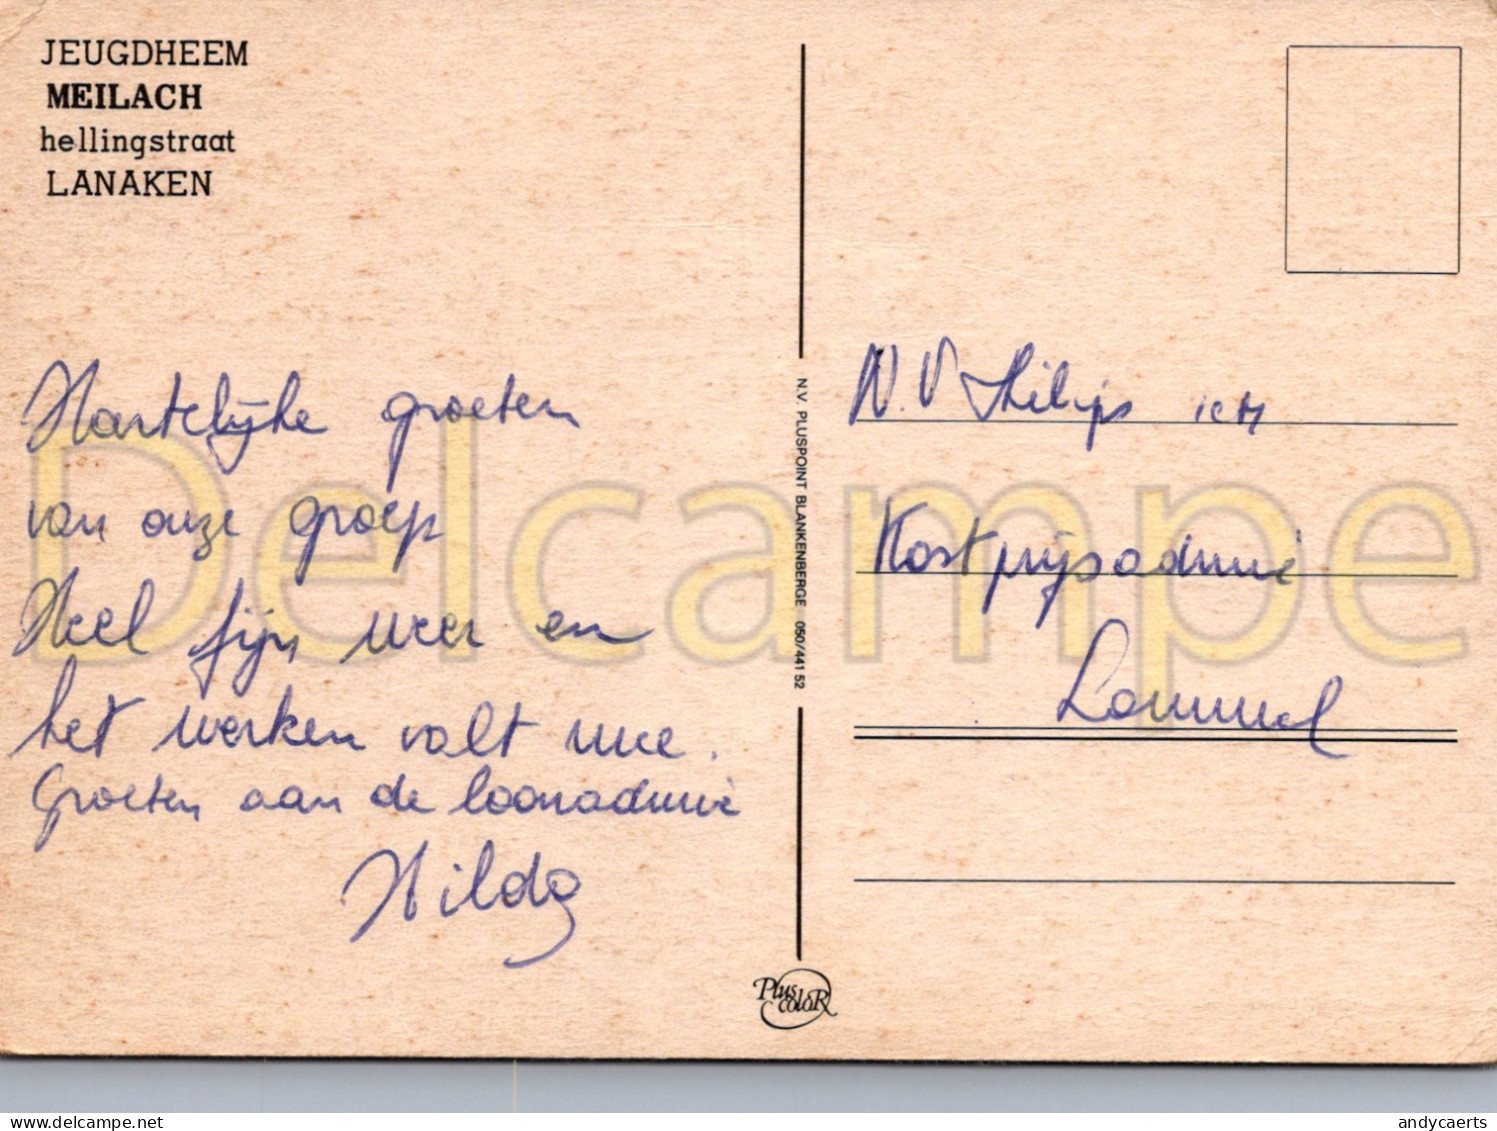 JEUGDHEEM
MEILACH
hellingstraat
LANAKEN
Hartelijke groeten
van onze groep
Heel fijn weer en
het werken valt mee.
Groeten aan de loonadmie
Hilda
N.V. PLUSPOINT BLANKENBERGE 050/441 52
Plus colòR
N.V Philips
Kostprijsadmie
Lommel
Delcampe
delcampe.net
andycaerts